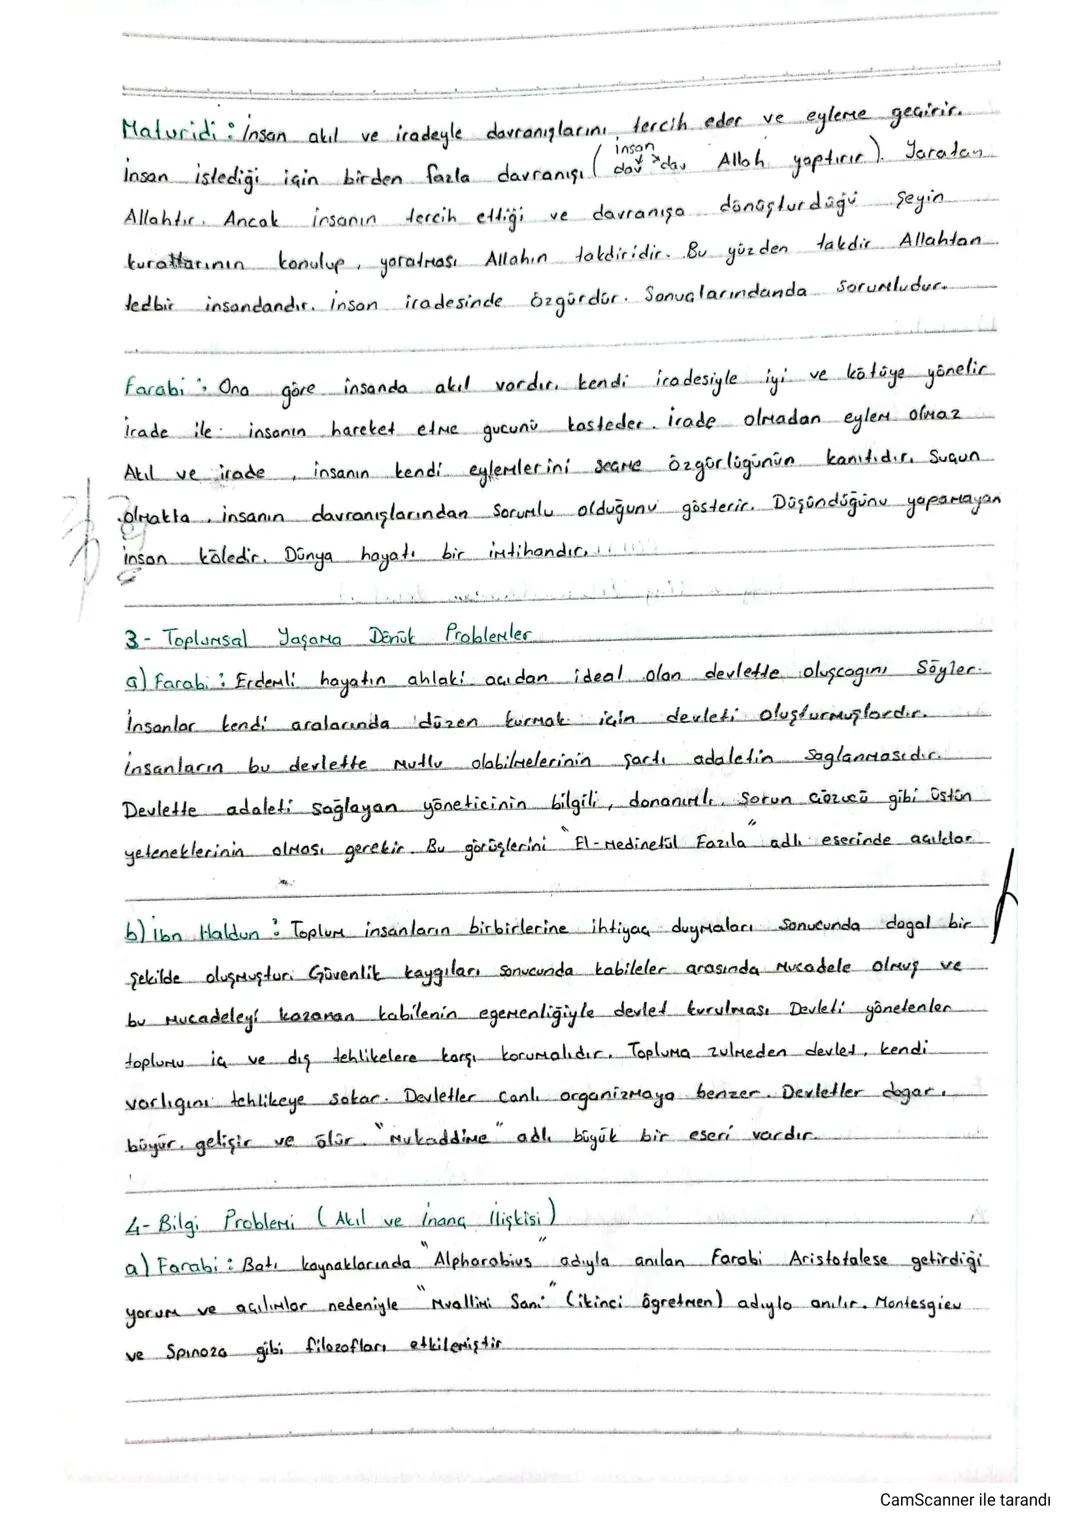 Maturidi : İnsan akıl ve iradeyle davranışlarını tercih eder ve eyleme geçirir.
İnsan istediği için birden fazla davranışı ( insan dav dav Allah yaptırır ). Yaratan
Allahtır. Ancak insanın tercih ettiği ve davranışa dönüşturdüğü şeyin
kurallarının konulup, yaratması Allahın takdiridir. Bu yüzden takdir Allahtan
tedbir insandandır. İnsan iradesinde özgürdür. Sonuçlarındanda sorumludur.
Farabi : Ona göre insanda akıl vardır, kendi iradesiyle iyi ve kötüye yönelir
İrade ile insanın hareket etme gucunü kasteder. İrade olmadan eylem olmaz
Akıl ve irade, insanın kendi eylemlerini seçme özgürlügünün kanıtıdır. Suçun
olmakta, insanın davranışlarından sorumlu olduğunu gösterir. Düşündüğünü yapamayan
insan köledir. Dünya hayatı bir imtihandır.
3- Toplumsal Yaşama Dönük Problemler
a) Farabi : Erdemli hayatın ahlaki acıdan ideal olan devlette oluşcagını Söyler.
İnsanlar kendi aralarında düzen kurmak için devleti oluşturmuşlardır.
İnsanların bu devlette mutlu olabilmelerinin şartı adaletin saglanmasıdır.
Devlette adaleti sağlayan yöneticinin bilgili, donanımlı, sorun çözücü gibi üstün
yeteneklerinin olması gerekir. Bu görüşlerini "El-Medinetül Fazıla" adlı eserinde açıklar
b) İbn Haldun : Toplum insanların birbirlerine ihtiyaç duymaları sonucunda dogal bir
şekilde oluşmuştur. Güvenlik kaygıları sonucunda kabileler arasında mucadele olmuş ve
bu mucadeleyi kazanan kabilenin egemenliğiyle devlet kurulması Devleti yönetenler
toplumu iç ve dış tehlikelere karşı korumalıdır. Topluma zulmeden devlet, kendi
varlıgını tehlikeye sokar. Devletler canlı organizmaya benzer. Devletler dogar,
büyür, gelişir ve ölür. "Mukaddime" adlı büyük bir eseri vardır.
4- Bilgi Problemi ( Akıl ve İnanç İlişkisi )
a) Farabi : Batı kaynaklarında "Alpharabius" adıyla anılan Farabi Aristotalese getirdiği
yorum ve açılımlar nedeniyle "Muallimi Sani" (ikinci ögretmen) adıyla anılır. Montesgieu
ve Spinoza gibi filozofları etkilemiştir
CamScanner ile tarandı